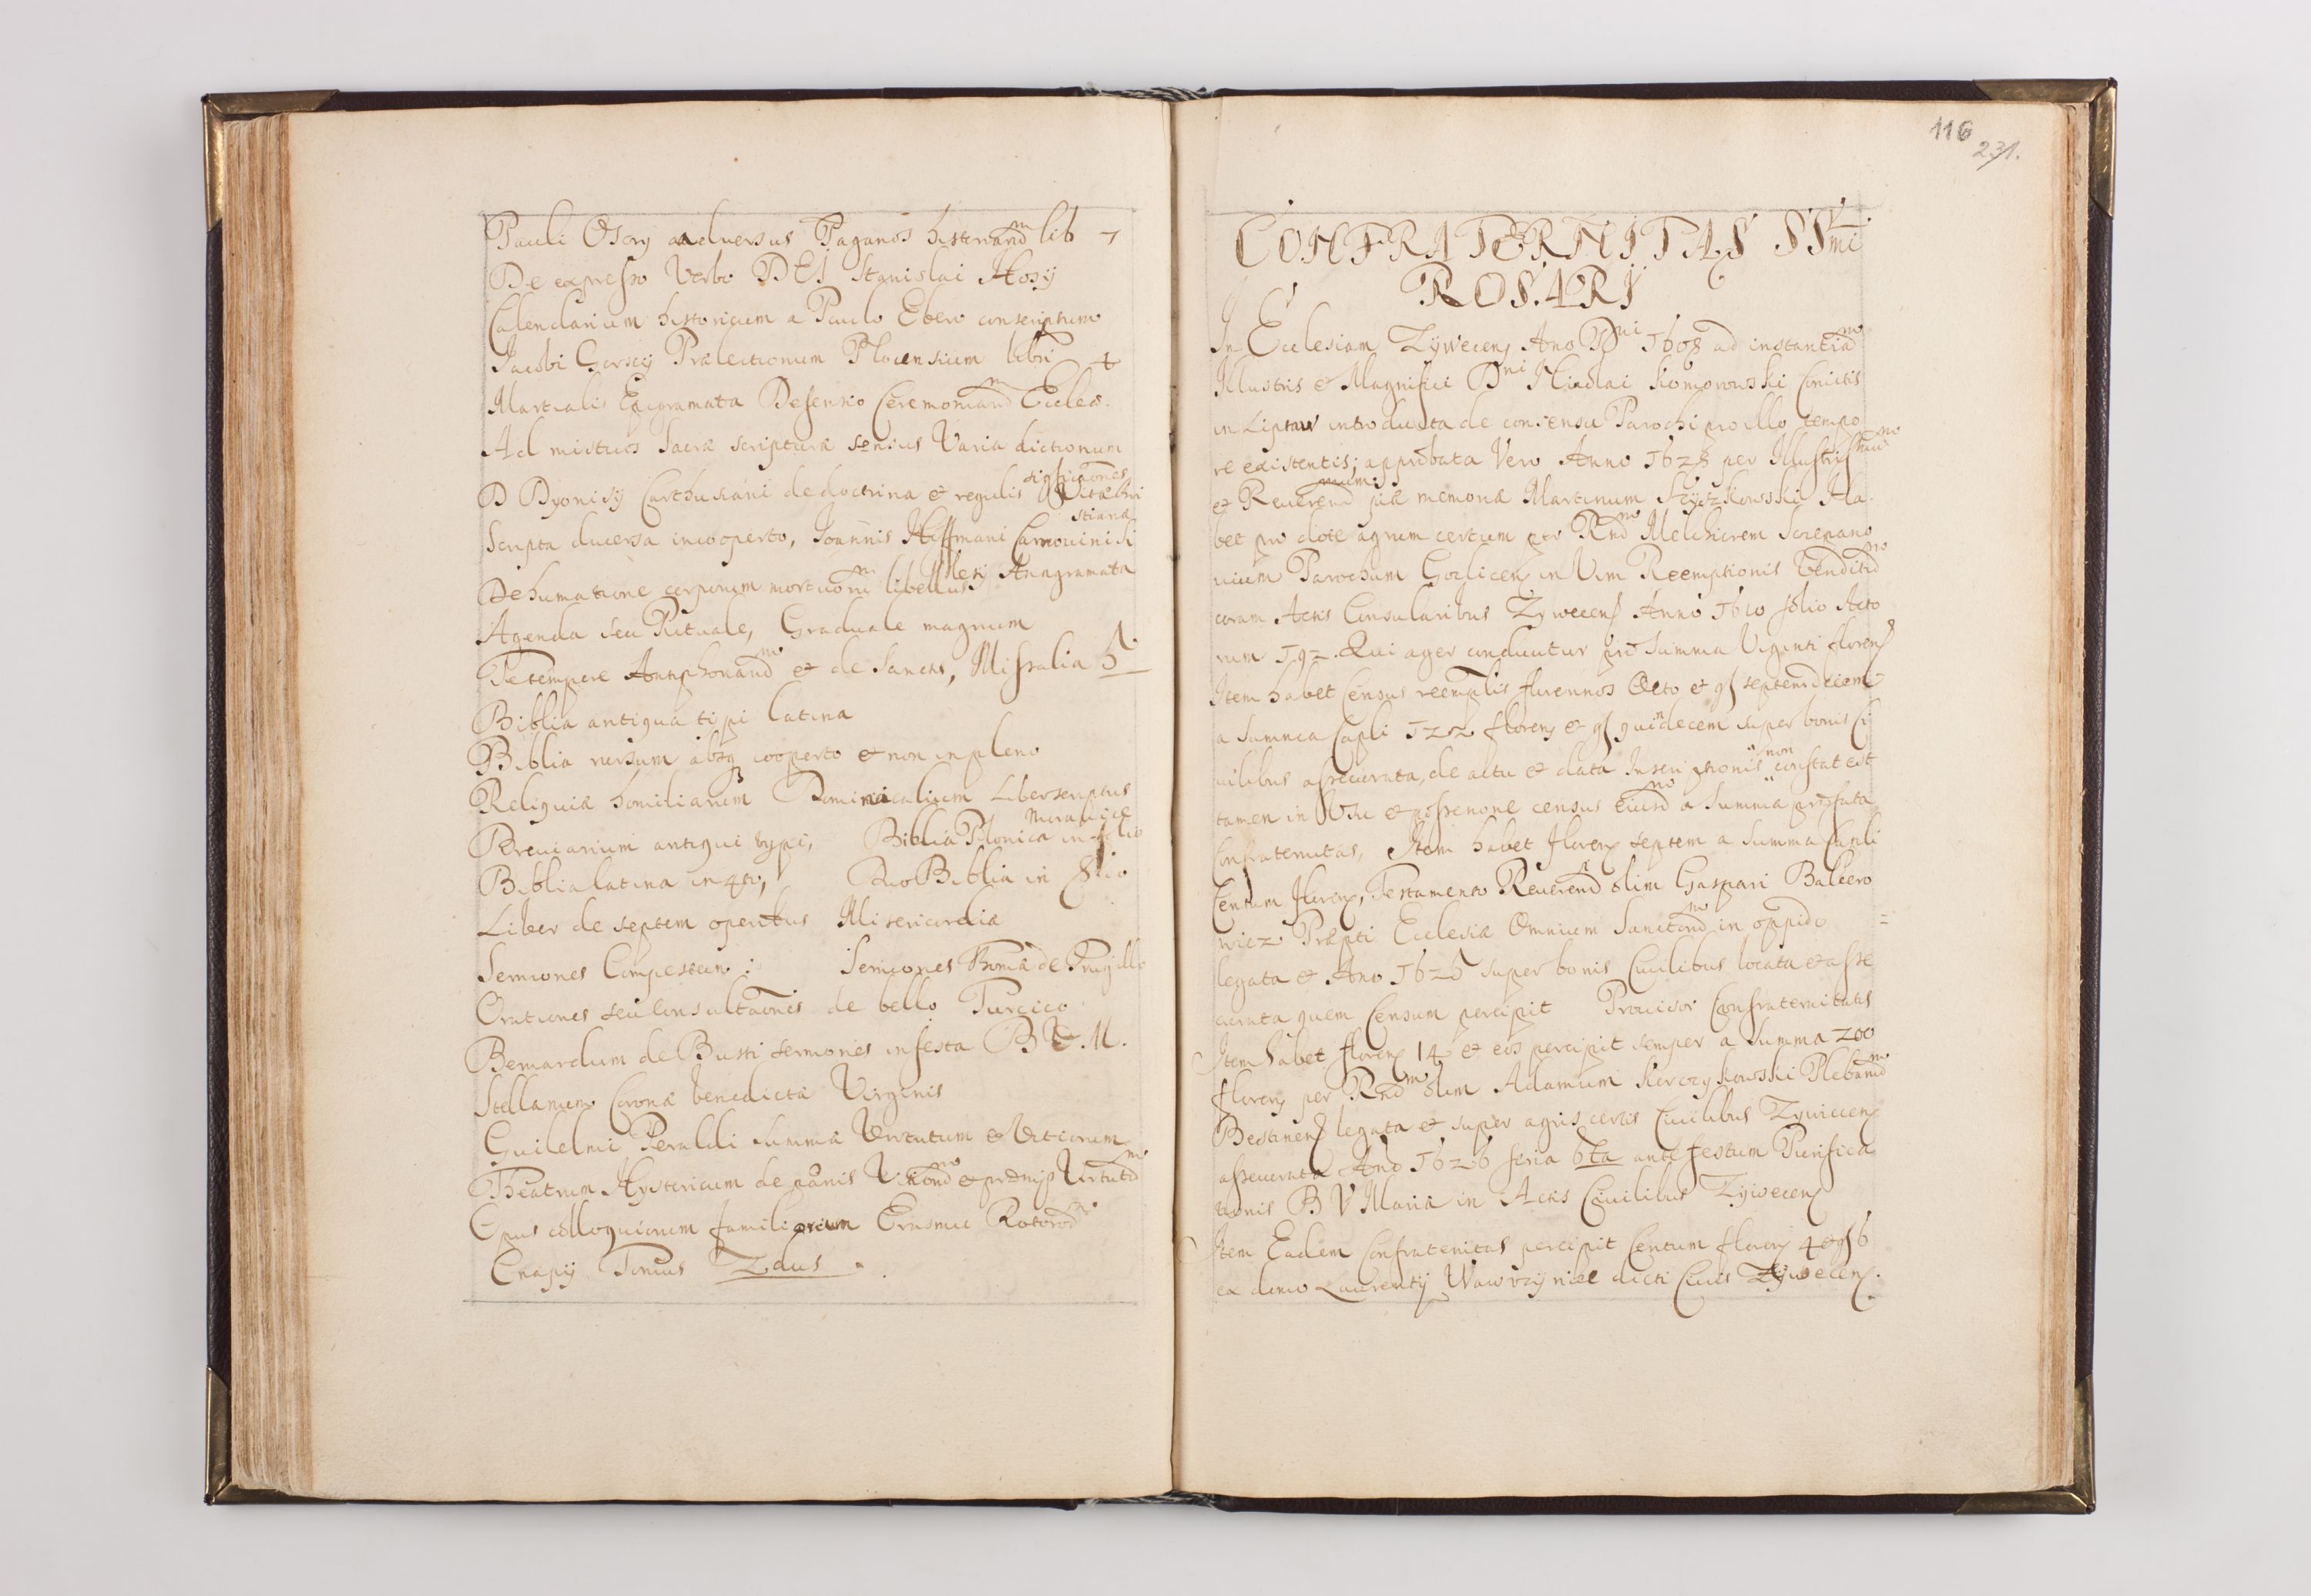 Pauli Osorij aduersus Paganos historiarum lib 7
De expresso Verbo DEI Stanislai Hosij
Calendarium historicum a Paulo Ebero conscriptum
Jacobi Gorscij Prælectionum Plocensium libri 4
Martialis Epigramata Defensio Ceremoniarum Eccles.
Ad misticos Sacræ scripturæ sensus Varia dictionum
significationes
D Dyonisij Carthusiani de doctrina et regulis Vitæ Chri
stianæ
Scripta diuersa incooperto, Joannis Hoffmani
De humatione corporum mortuorum libellus, Anagramata
Agenda seu Rituale, Graduale magnum
De tempore Antiphonarium et de Sanctis, Missalia 5
Biblia antiqua tipi latina
Biblia rursum absq cooperto et non in pleno
Reliquiæ homiliarum Dominicalium Liber scriptus
Breuiarium antiqui typi, Biblia Polonica in folio
Biblia latina in 4to, Duo Biblia in
Liber de septem operibus Misericordiæ
Sermones Sermones Thomæ de
Orationes seu Consultaones de bello Turcico
Bernardum de Busti sermones in festa B V. M.
Stellarium Coronæ benedictæ Virginis
Guilelmi Peraldi Summa Virtutum et Vitiorum
Theatrum Hystoricum de pœnis et præmijs Virtutum
Opus colloquiorum familiarium Erasmi Roterod
Cnapij Tomus 2dus
116
231.
CONFRATERNITAS SSmi
ROSARY
In Ecclesiam Zÿwecens Ano Dni 1608 ad instantiam
Illustris et Magnifici Dni Nicolai Komorowski Comitis
in Liptaw introducta de consensu Parochi pro illo tempo
re existentis; approbata Vero Anno 1628 per Illustriss
et Reuerend piæ memoriæ Martinum Szyszkowski Ha
bet pro dote agrum certum per Rnd Melchiorem Szczepano
uium Parochum in Vim Reemptionis Venditum
coram Actis Consularibus Zywecens Anno 1610 folio Acto
rum 192. Qui ager conducitur pro summa Viginti florens
Item habet Census reemptis florennos Octo et gs septemdecem
a summa Capli 122 florens et gs quindecem super bonis Ci
uilibus assecurata, de actu et data Inscriptionis non constat est
tamen in Usu et possessione census eiusd a Summa præfata
Confraternitas, Item habet florens septem a summa Capli
Centum florens, Testamento Reuerend olim Gaspari Balcero
wicz Præpti Ecclesiæ Omnium Sanctorum in oppido
legata et Ano 1625 super bonis Ciuilibus locata et asse
curata quem Censum percipit Prouisor Confraternitatis
Item habet florens 14 et eos percipit semper a summa 200
florens per Rnd olim Adamum Plebanum
legata et super agris certis Ciuilibus Zywecens
assecurata Ano 1626 feria 6ta ante festum Purifica
tionis B V Mariæ in Actis Ciuilibus Zÿwecens
Item Eadem Confraternitas percipit Centum florens 4 et gs 6
ex domo Laurentij dicti Ciuis Zÿwecens.